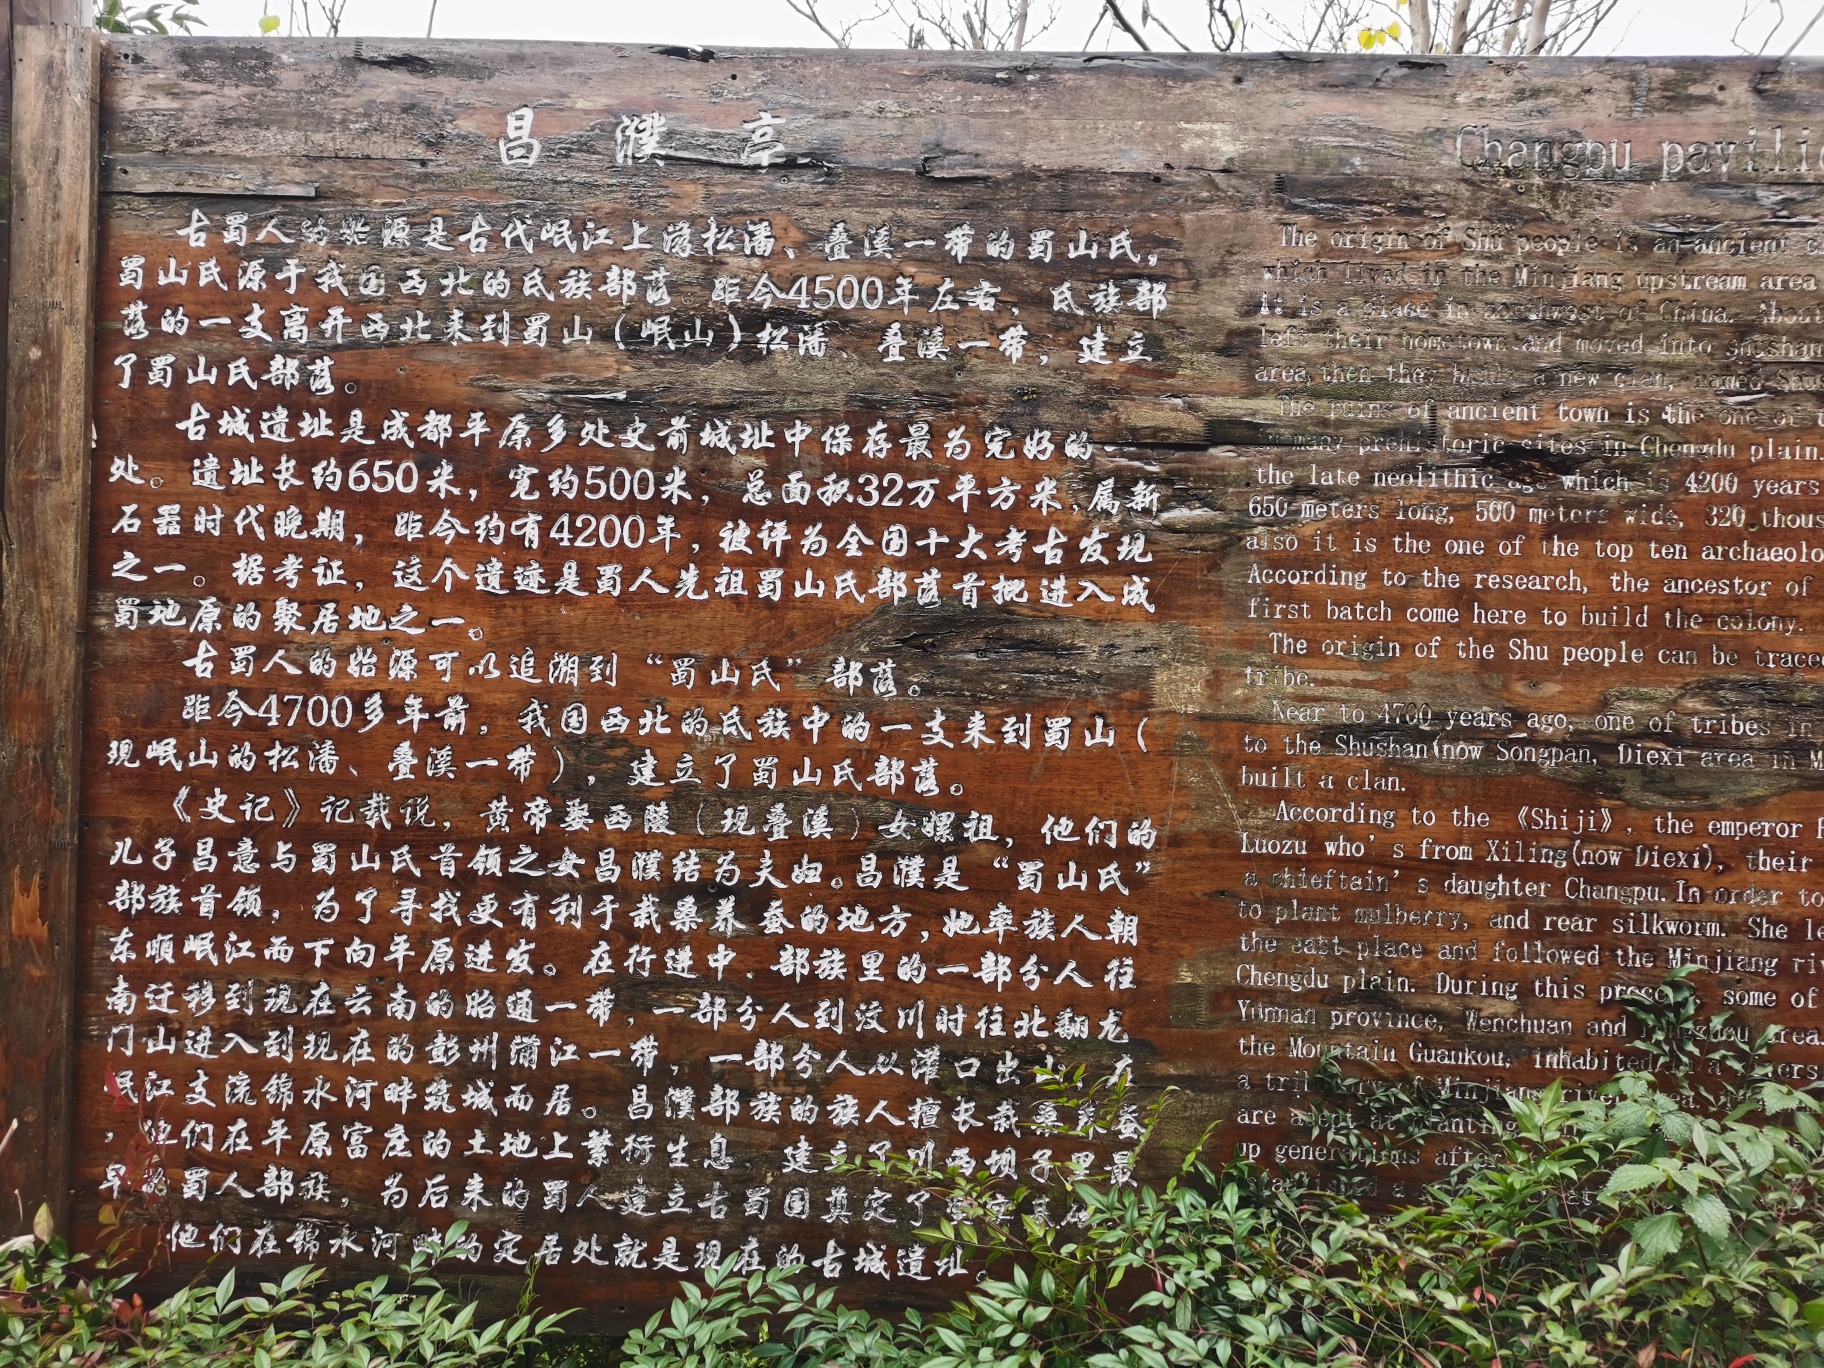 昌濮亭
古蜀人的始源是古代岷江上游松潘、叠溪一带的蜀山氏，
蜀山氏源于我国西北的氏族部落。距今4500年左右，氏族部
落的一支离开西北来到蜀山（岷山）松潘、叠溪一带，建立
了蜀山氏部落。
古城遗址是成都平原多处史前城址中保存最为完好的一
处。遗址长约650米，宽约500米，总面积32万平方米，属新
石器时代晚期，距今约有4200年，被评为全国十大考古发现
之一。据考证，这个遗迹是蜀人先祖蜀山氏部落首批进入成
蜀地原的聚居地之一。
古蜀人的始源可以追溯到“蜀山氏”部落。
距今4700多年前，我国西北的氏族中的一支来到蜀山（
现岷山的松潘、叠溪一带），建立了蜀山氏部落。
《史记》记载说，黄帝娶西陵（现叠溪）女嫘祖，他们的
儿子昌意与蜀山氏首领之女昌濮结为夫妇。昌濮是“蜀山氏”
部族首领，为了寻找更有利于栽桑养蚕的地方，她率族人朝
东顺岷江而下向平原进发。在行进中，部族里的一部分人往
南迁移到现在云南的昭通一带，一部分人到汶川时往北翻龙
门山进入到现在的彭州蒲江一带，一部分人从灌口出山，在
岷江支流锦水河畔筑城而居。昌濮部族的族人擅长栽桑养蚕
，他们在平原富庶的土地上繁衍生息，建立了川西坝子里最
早的蜀人部族，为后来的蜀人建立古蜀国奠定了
他们在锦水河畔的定居处就是现在的古城遗址。
Changpu
The origin of Shu people is an ancient
which lived in the Minjiang upstream area
it is a place in northwest of China. About
left their hometown and moved into shushan
area, then they build a new clan, named Shus
The ruins of ancient town is the one of
in many prehistoric sites in Chengdu plain.
the late neolithic age which is 4200 years
650 meters long, 500 meters wide, 320
also it is the one of the top ten
According to the research, the ancestor of
first batch come here to build the colony.
The origin of the Shu people can be traced
tribe.
Near to 4700 years ago, one of tribes in
to the Shushan(now Songpan, Diexi area in
built a clan.
According to the 《Shiji》, the emperor
Luozu who's from Xiling(now Diexi), their
a chieftain's daughter Changpu.In order to
to plant mulberry, and rear silkworm. She
the east place and followed the Minjiang
Chengdu plain. During this process, some of
Yunnan province, Wenchuan and
the Mountain Guankou, inhabited
a tributary of Minjiang river
are adept at planting
up generations after